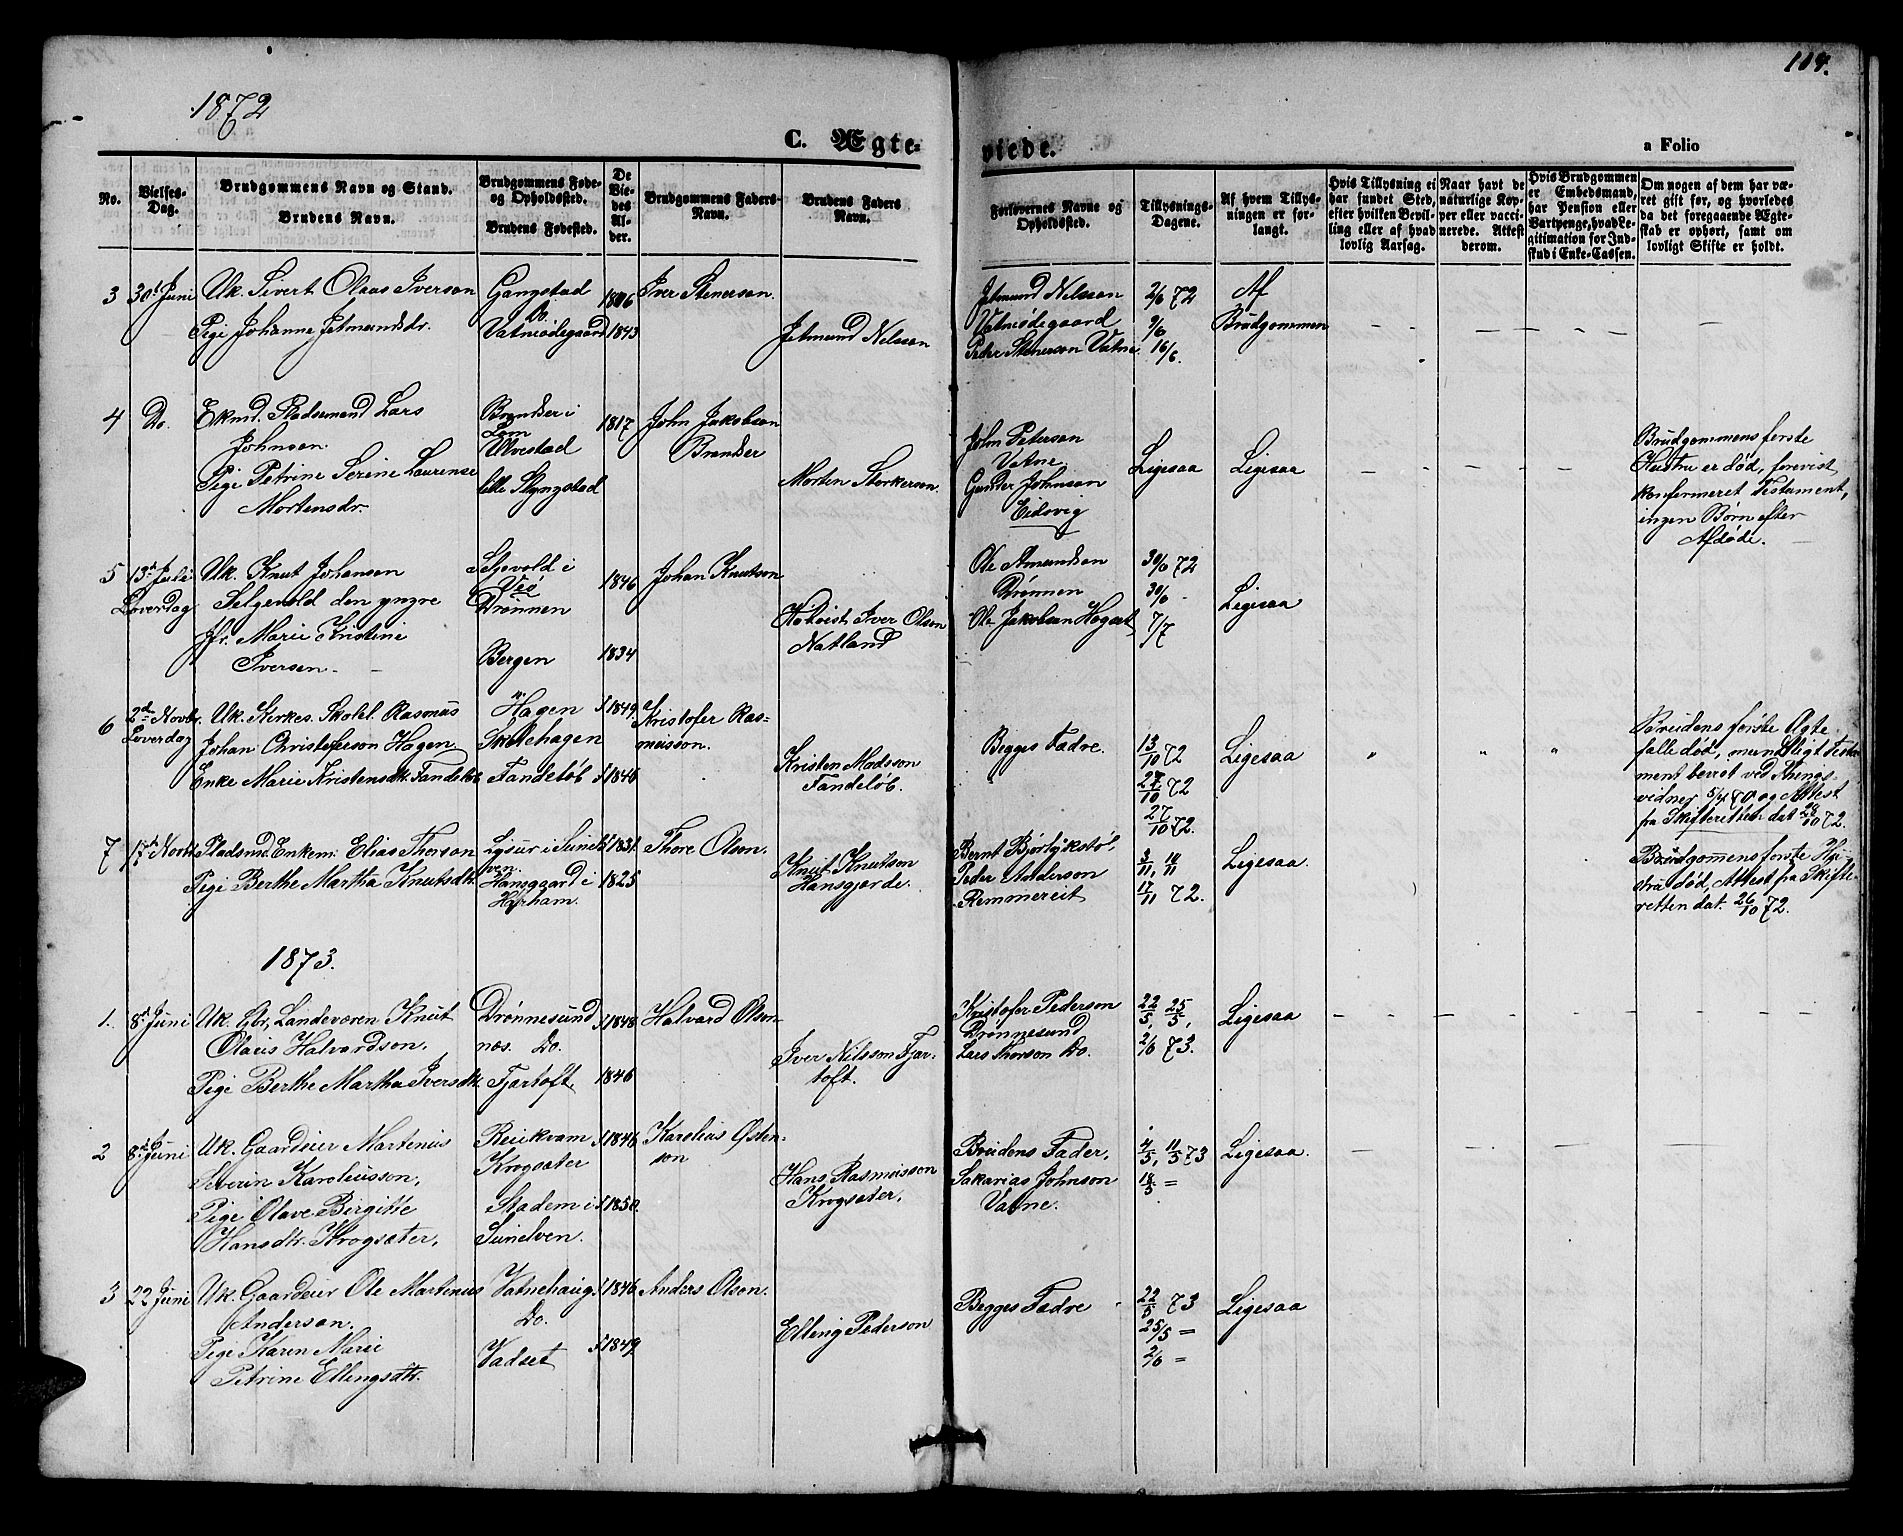 114.
1872
C. Ægteviede.
a Folio
No.
Vielses-Dag.
Brudgommens Navn og Stand.
Brudens Navn.
Brudgommens Føde- og Opholdssted.
Brudens Fødested.
De Viedes Alder.
Brudgommens Faders Navn.
Brudens Faders Navn.
Forlovernes Navne og Opholdssted.
Tillysnings-Dagene.
Af hvem Tillysningen er forlangt.
Hvis Tillysning ei har fundet Sted, efter hvilken Bevilling eller af hvad lovlig Aarsag.
Naar havt de naturlige Kopper eller vaccinerede. Attest derom.
Hvis Brudgommen er Embedsmand, har Pension eller Vartpenge, hvad Legitimation for Indskud i Enke-Cassen.
Om nogen af dem har været gift før, og hvorledes da det foregaaende Ægteskab er ophørt, samt om lovligt Skifte er holdt.
3 30t Juni
Uk. Sivert Olaas Iverson
Pige Johanne Jetmundsdr.
Gangstad
Do.
Vatneødegaard
1843
Iver Stenerson.
Jetmund Nilsson
Jetmund Nilsson
Vatneødegaard
Peder Stenerson Vatne
2/6 72
9/6
16/6.
Af
Brudgommen
4 Do.
Ekmd. Pladsemand Lars
Johnson
Pige Petrine Serine Laurense
Mortensdr.
Brandser i
Lom
Ulvestad
lille Slyngstad
1817
John Jakobson
Brandser
Morten Storkerson.
John Peterson
Vatne
Gunder Johnson
Eidsvig
Ligesaa
Ligesaa
Brudgommens første
Hustru er død, forevist
konfirmeret Testament,
ingen Børn efter
Afdøde.
5 13de Juli
Løverdag
Uk. Knut Johanson
Selgevold den yngre
Jfr. Marie Kristine
Iversen
Selgevold i
Veø
Drønnen
Bergen
1846
1834
Johan Knutson
Iver Olson
Natland
Ole Amundson
Drønnen
Ole Jakobson
30/6 72
30/6
7/7
Ligesaa
6 2den Novbr.
Løverdag
Uk. Kirkes. Skolel. Rasmus
Johan Christoferson Hagen
Enke Marie Kristensdtr. Tandeløb
Hagen
Skolehagen
Tandeløb
1849
1846
Kristofer Rasmusson.
Kristen Madsson
Tandeløb.
Begges Fædre.
13/10 72
27/10 72
27/10 72.
Ligesaa
" " "
Brudens første Ægtefælle død, mundtligt Testament bevist ved Thingsvidner 5/4 70 og Attest
fra Skifteretten dat. 28/10 72.
7 17de Novbr
Pladsmd. Enkem. Elias Thorson
Pige Berthe Martha Knutsdtr.
i Sunelven.
Hansgaard i
Harham.
1831.
1825
Thore Olson.
Knut Knutson
Hansgjerde.
Bernt
Peder Anderson
Remmereit
3/11, 10/11
17/11 72.
Ligesaa
Brudgommens første Hustru død, Attest fra Skifteretten dat. 26/10 72.
1873.
1. 8de Juni
Uk. Gbr. Landeværn Knut
Olaus Halvardson.
Pige Berthe Martha Iversdtr.
Drønnesund
næs. Do.
Fjærtoft
1848
1846
Halvard Olson
Iver Nilsson Fjærtoft.
Kristofer Pederson
Drønnesund
Lars Thorson Do.
22/5, 25/5,
2/6 73.
Ligesaa
2 8de Juni
Uk. Gaardeier Martinus
Severin Karoliusson,
Pige Olave Birgitte
Hansdtr. Krogsæter.
Reiekvam
Krogsæter
Stadem i
Sunelven.
1846
1850.
Karolius Østenson
Hans Rasmusson
Krogsæter.
Brudens Fader.
Sakarias Johnson
Vatne.
4/5, 11/5 73
18/5 =
Ligesaa.
3 22 Juni
Uk. Gaardeier Ole Martinus
Anderson.
Pige Karen Marie
Petrine Ellingsdtr.
Vatnehaug
Do.
Vadset
1846
1849
Anders Olson.
Elling Pederson
Begges Fædre
22/5 73
25/5 =
2/6 =
Ligesaa